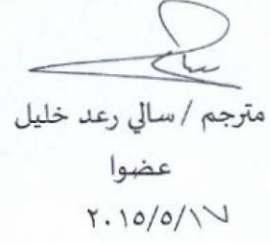 مترجم / سالي رعد خليل
عضوا
٢٠١٥/٥/١٧